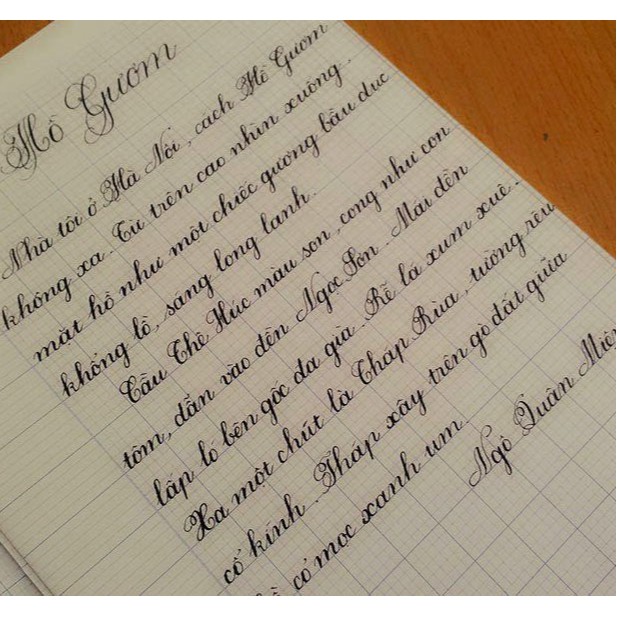 Hồ Gươm
Nhà tôi ở Hà Nội, cách Hồ Gươm
không xa. Từ trên cao nhìn xuống,
mặt hồ như một chiếc gương bầu dục
khổng lồ, sáng long lanh.
Cầu Thê Húc màu son, cong như con
tôm, dẫn vào đền Ngọc Sơn. Mái đền
lấp ló bên gốc đa già. Rễ lá xum xuê.
Xa một chút là Tháp Rùa, tường rêu
cổ kính. Tháp xây trên gò đất giữa
cỏ mọc xanh um.
Ngô Quân